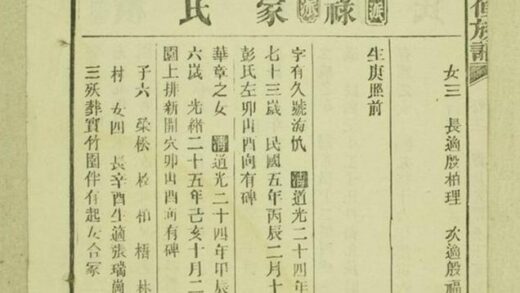 族譜
祿家氏
女三 長適殷柏理 次適殷福
生庚歷前
字有久號海帆 清道光二十四年
七十三歲 民國五年丙辰二月十
彭氏左卯山酉向有碑
華章之女 清道光二十四年甲辰
六歲 光緒二十五年己亥十月二
園上排新開穴卯山酉向有碑
子六 榮松 柏 梧 林
村 女四 長辛酉生適張瑞
三殀葬寶竹園伴有起女合冢